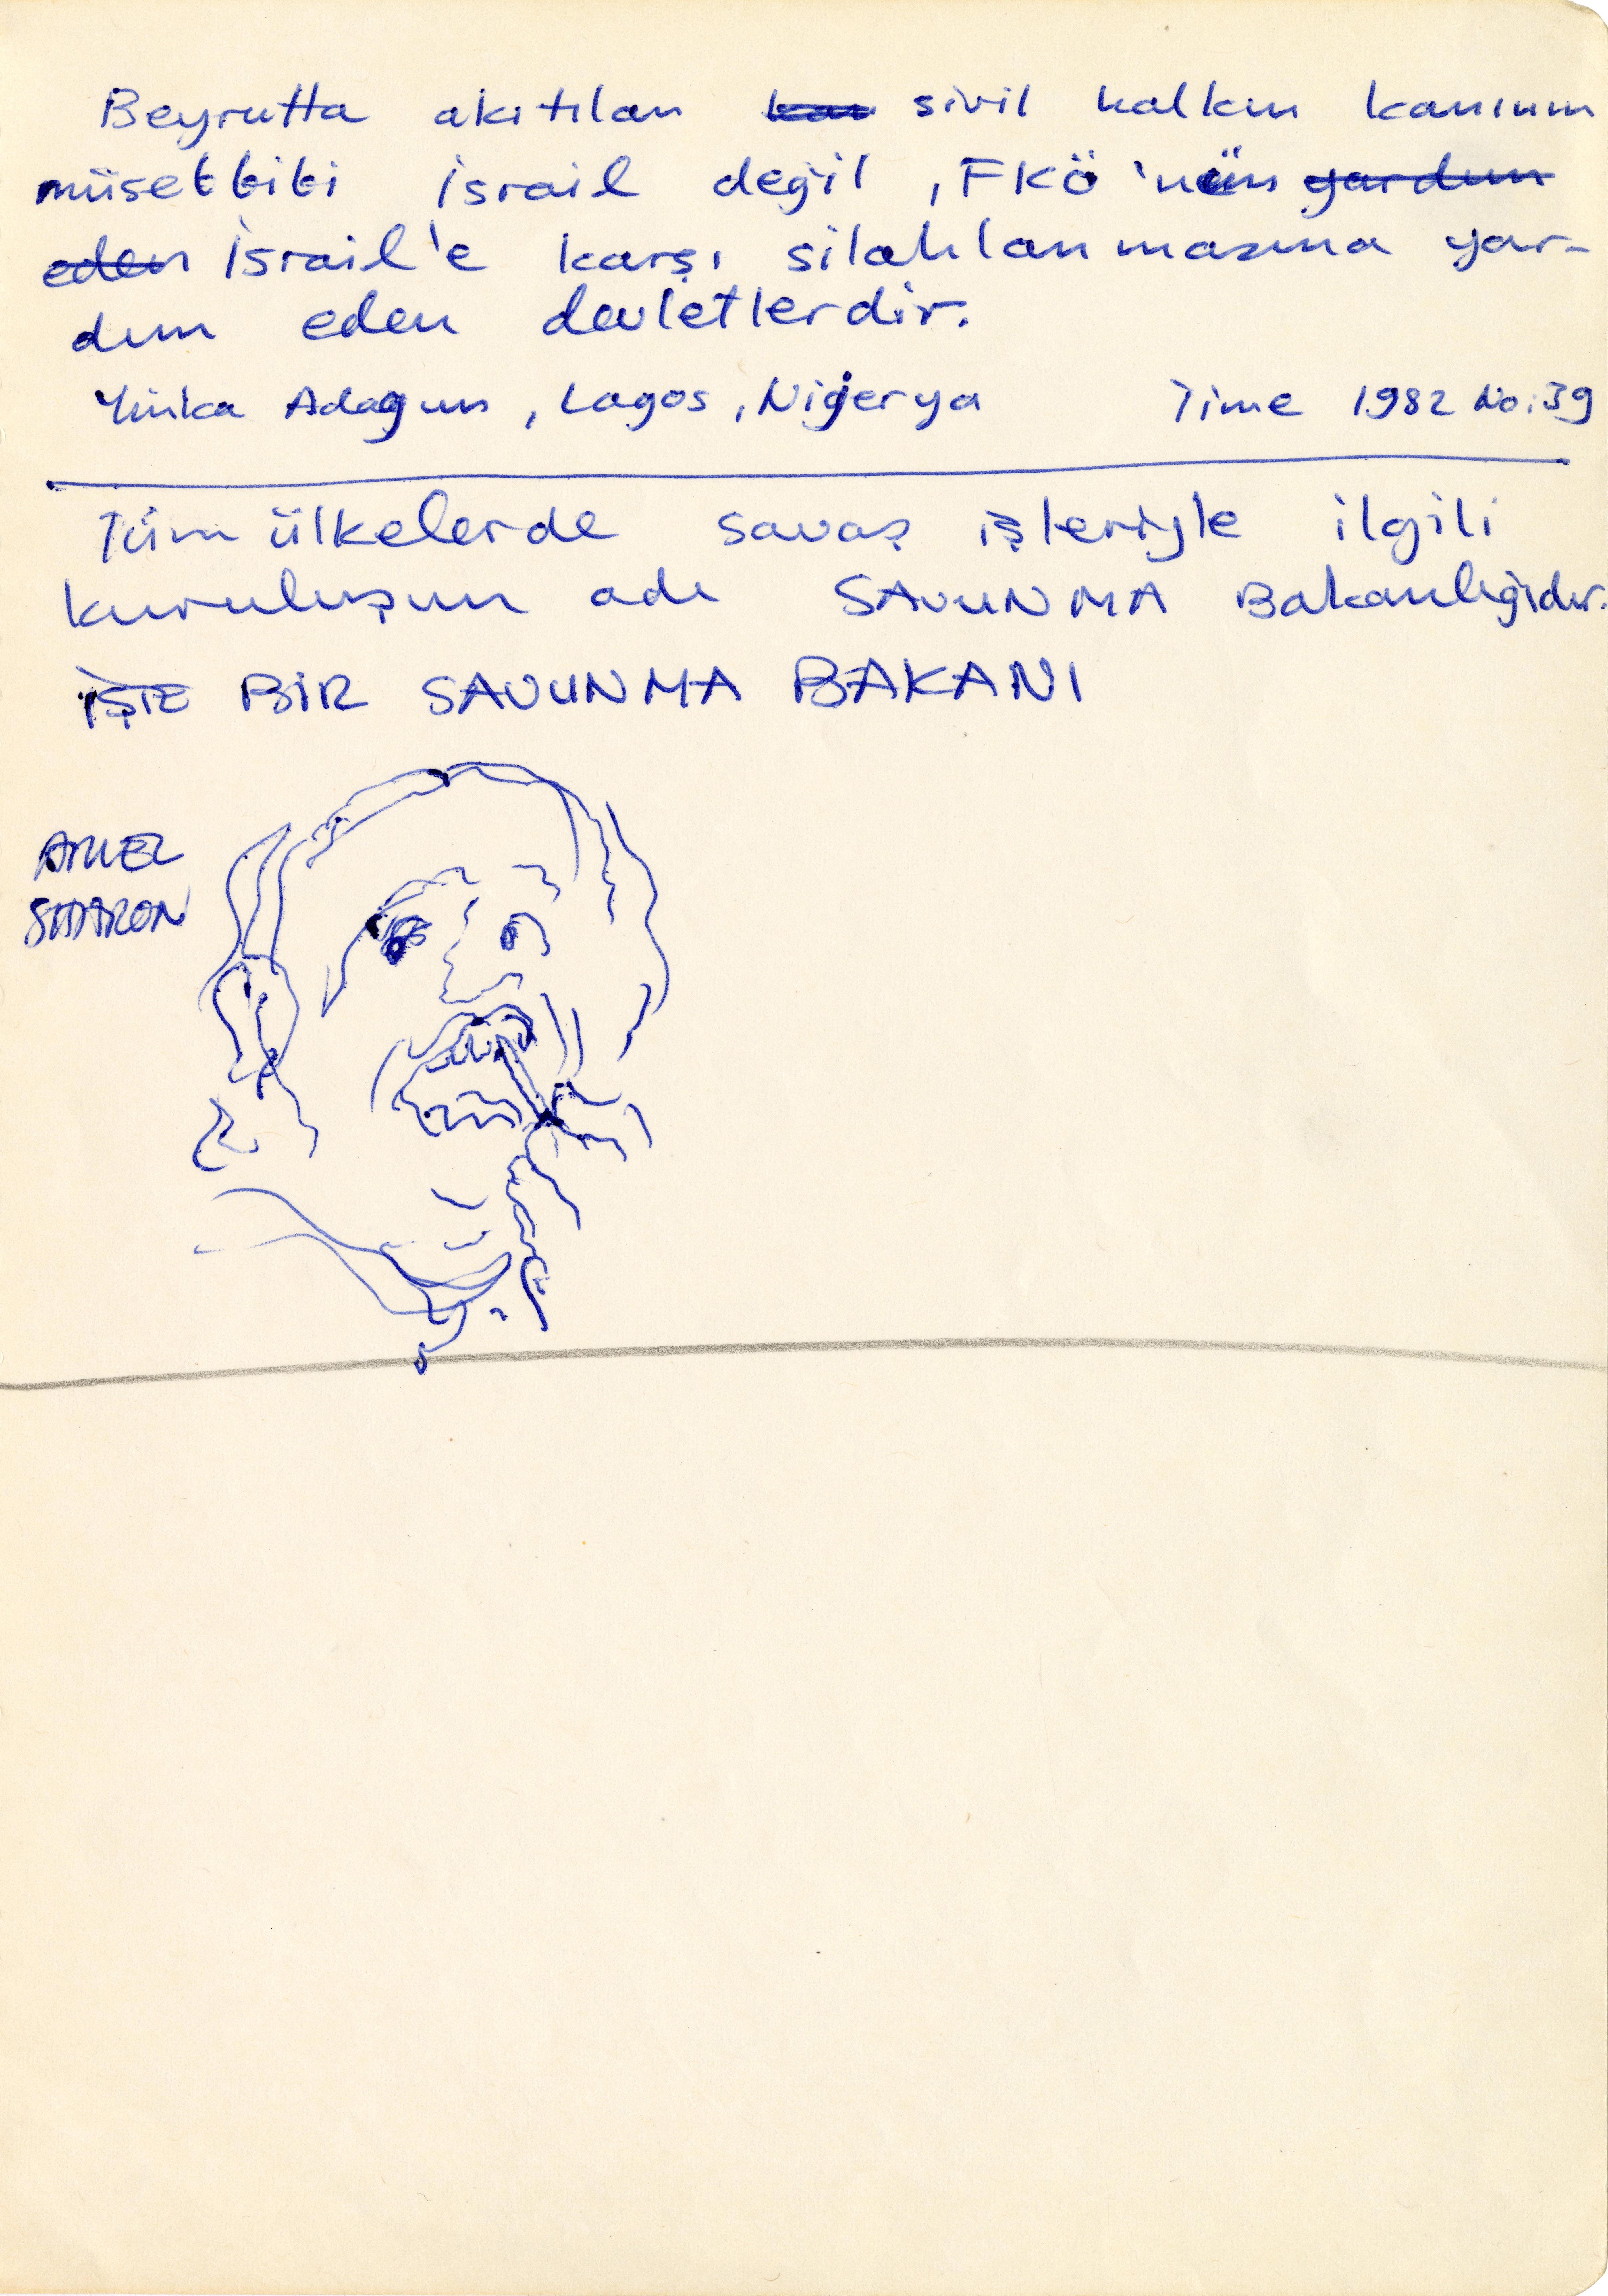 Beyrutta akıtılan kan sivil halkın kanının
müsebbibi İsrail değil, FKÖ'nün yardım
eden İsrail'e karşı silahlanmasına yar-
dım eden devletlerdir.
Yinka Adagun, Lagos, Nijerya Time 1982 No:39
Tüm ülkelerde savaş işleriyle ilgili
kuruluşun adı SAVUNMA Bakanlığıdır.
İŞTE BİR SAVUNMA BAKANI
ARIEL
SHARON